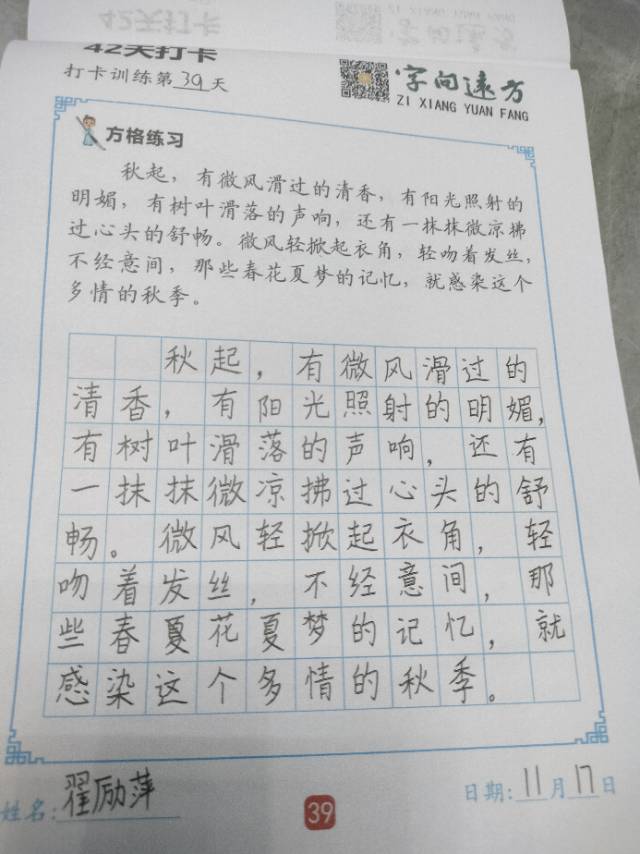 42天打卡
打卡训练第39天
字向远方
ZI XIANG YUAN FANG
方格练习
秋起，有微风滑过的清香，有阳光照射的
明媚，有树叶滑落的声响，还有一抹抹微凉拂
过心头的舒畅。微风轻掀起衣角，轻吻着发丝，
不经意间，那些春花夏梦的记忆，就感染这个
多情的秋季。
秋起，有微风滑过的
清香，有阳光照射的明媚，
有树叶滑落的声响，还有
一抹抹微凉拂过心头的舒
畅。微风轻掀起衣角，轻
吻着发丝，不经意间，那
些春夏花夏梦的记忆，就
感染这个多情的秋季。
姓名：翟励萍
39
日期：11月17日